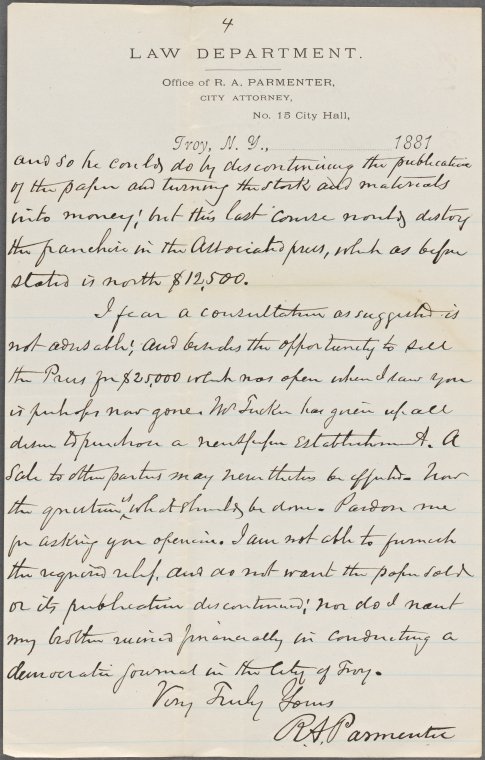 4
LAW DEPARTMENT.
Office of R. A. PARMENTER,
CITY ATTORNEY,
No. 15 City Hall,
Troy, N. Y., 1881
and so he could do by discontinuing the publication
of the paper and turning the stock and materials
into money; but this last course would destroy
the franchise in the Associated press, which as before
stated is worth $12,500.
I fear a consultation as suggested is
not advisable; and besides the opportunity to sell
the Press for $25,000 which was open when I saw you
is perhaps now gone. Mr Tucker has given up all
desire to purchase a newspaper establishment. A
Sale to other parties may nevertheless be effected. Now
the question is, what should be done. Pardon me
for asking your opinion. I am not able to furnish
the required relief, and do not want the paper sold
or its publication discontinued; nor do I want
my brother ruined financially in conducting a
democratic journal in the City of Troy.
Very Truly Yours
R. A. Parmenter